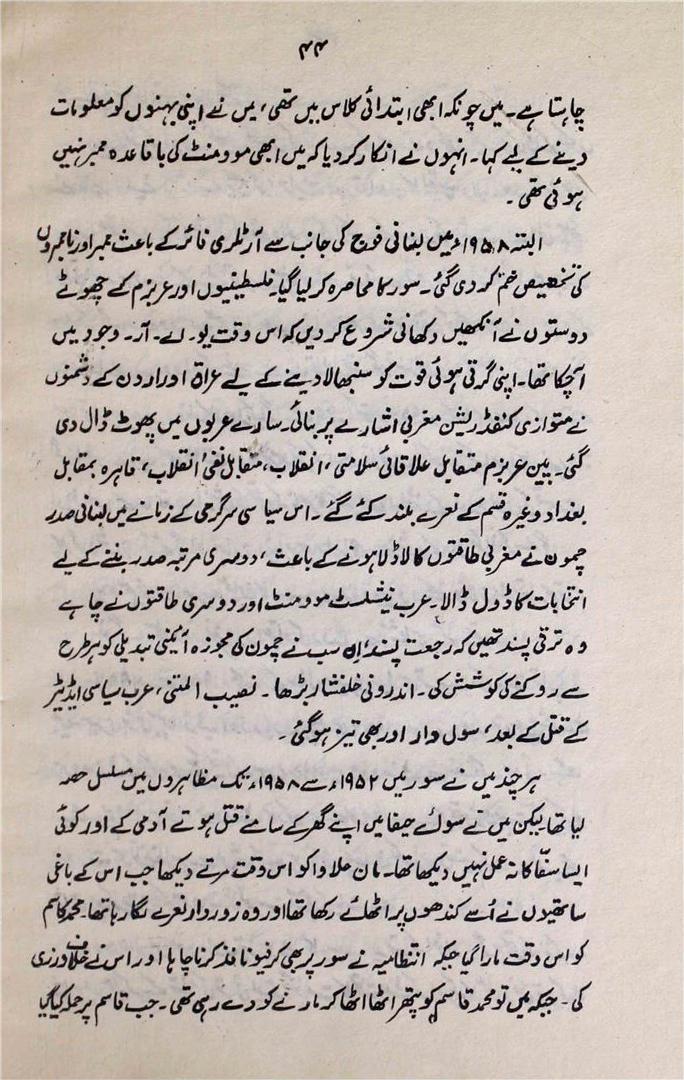 ۴۴
چاہتا ہے۔ میں چونکہ ابھی ابتدائی کلاس میں تھی، میں نے اپنی بہنوں کو معلومات
دینے کے لیے کہا۔ انہوں نے انکار کر دیا کہ میں ابھی موومنٹ کی باقاعدہ ممبر نہیں
ہوئی تھی۔
البتہ ۱۹۵۸ء میں لبنانی فوج کی جانب سے آرٹلری فائر کے باعث ممبر اور ناممبروں
کی تخصیص ختم کر دی گئی۔ سور کا محاصرہ کر لیا گیا۔ فلسطینیوں اور عربزم کے چھوٹے
دوستوں نے آنکھیں دکھانی شروع کر دیں کہ اس وقت یو۔ اے۔ آر۔ وجود میں
آچکا تھا۔ اپنی گرتی ہوئی قوت کو سنبھالا دینے کے لیے عراق اور اردن کے دشمنوں
نے متوازی کنفڈریشن مغربی اشارے پر بنائی۔ سارے عربوں میں پھوٹ ڈال دی
گئی۔ پین عربزم متقابل علاقائی سلامتی، انقلاب، متقابل نفیٔ انقلاب، قاہرہ بمقابل
بغداد وغیرہ قسم کے نعرے بلند کئے گئے۔ اس سیاسی سرگرمی کے زمانے میں لبنانی صدر
چمون نے مغربی طاقتوں کا لاڈلا ہونے کے باعث، دوسری مرتبہ صدر بننے کے لیے
انتخابات کا ڈول ڈالا۔ عرب نیشلسٹ موومنٹ اور دوسری طاقتوں نے چاہے
وہ ترقی پسند تھیں کہ رجعت پسند، ان سب نے چمون کی مجوزہ آئینی تبدیلی کو ہر طرح
سے روکنے کی کوشش کی۔ اندرونی خلفشار بڑھا۔ نصیب المتنی، عرب سیاسی ایڈیٹر
کے قتل کے بعد، سول وار اور بھی تیز ہو گئی۔
ہر چند میں نے سور میں ۱۹۵۲ء سے ۱۹۵۸ء تک مظاہروں میں مسلسل حصہ
لیا تھا لیکن میں نے سوائے حیفا میں اپنے گھر کے سامنے قتل ہوتے آدمی کے اور کوئی
ایسا سفّاکانہ عمل نہیں دیکھا تھا۔ مان حلاوا کو اس وقت مرتے دیکھا جب اس کے باغی
ساتھیوں نے اُسے کندھوں پر اٹھائے رکھا تھا اور وہ زوردار نعرے لگا رہا تھا۔ محمد قاسم
کو اس وقت مارا گیا جبکہ انتظامیہ نے سور پر بھی کرفیو نافذ کرنا چاہا اور اس نے خلاف ورزی
کی۔ جبکہ میں تو محمد قاسم کو پتھر اٹھا اٹھا کر مارنے کو دے رہی تھی۔ جب قاسم پر حملہ کیا گیا